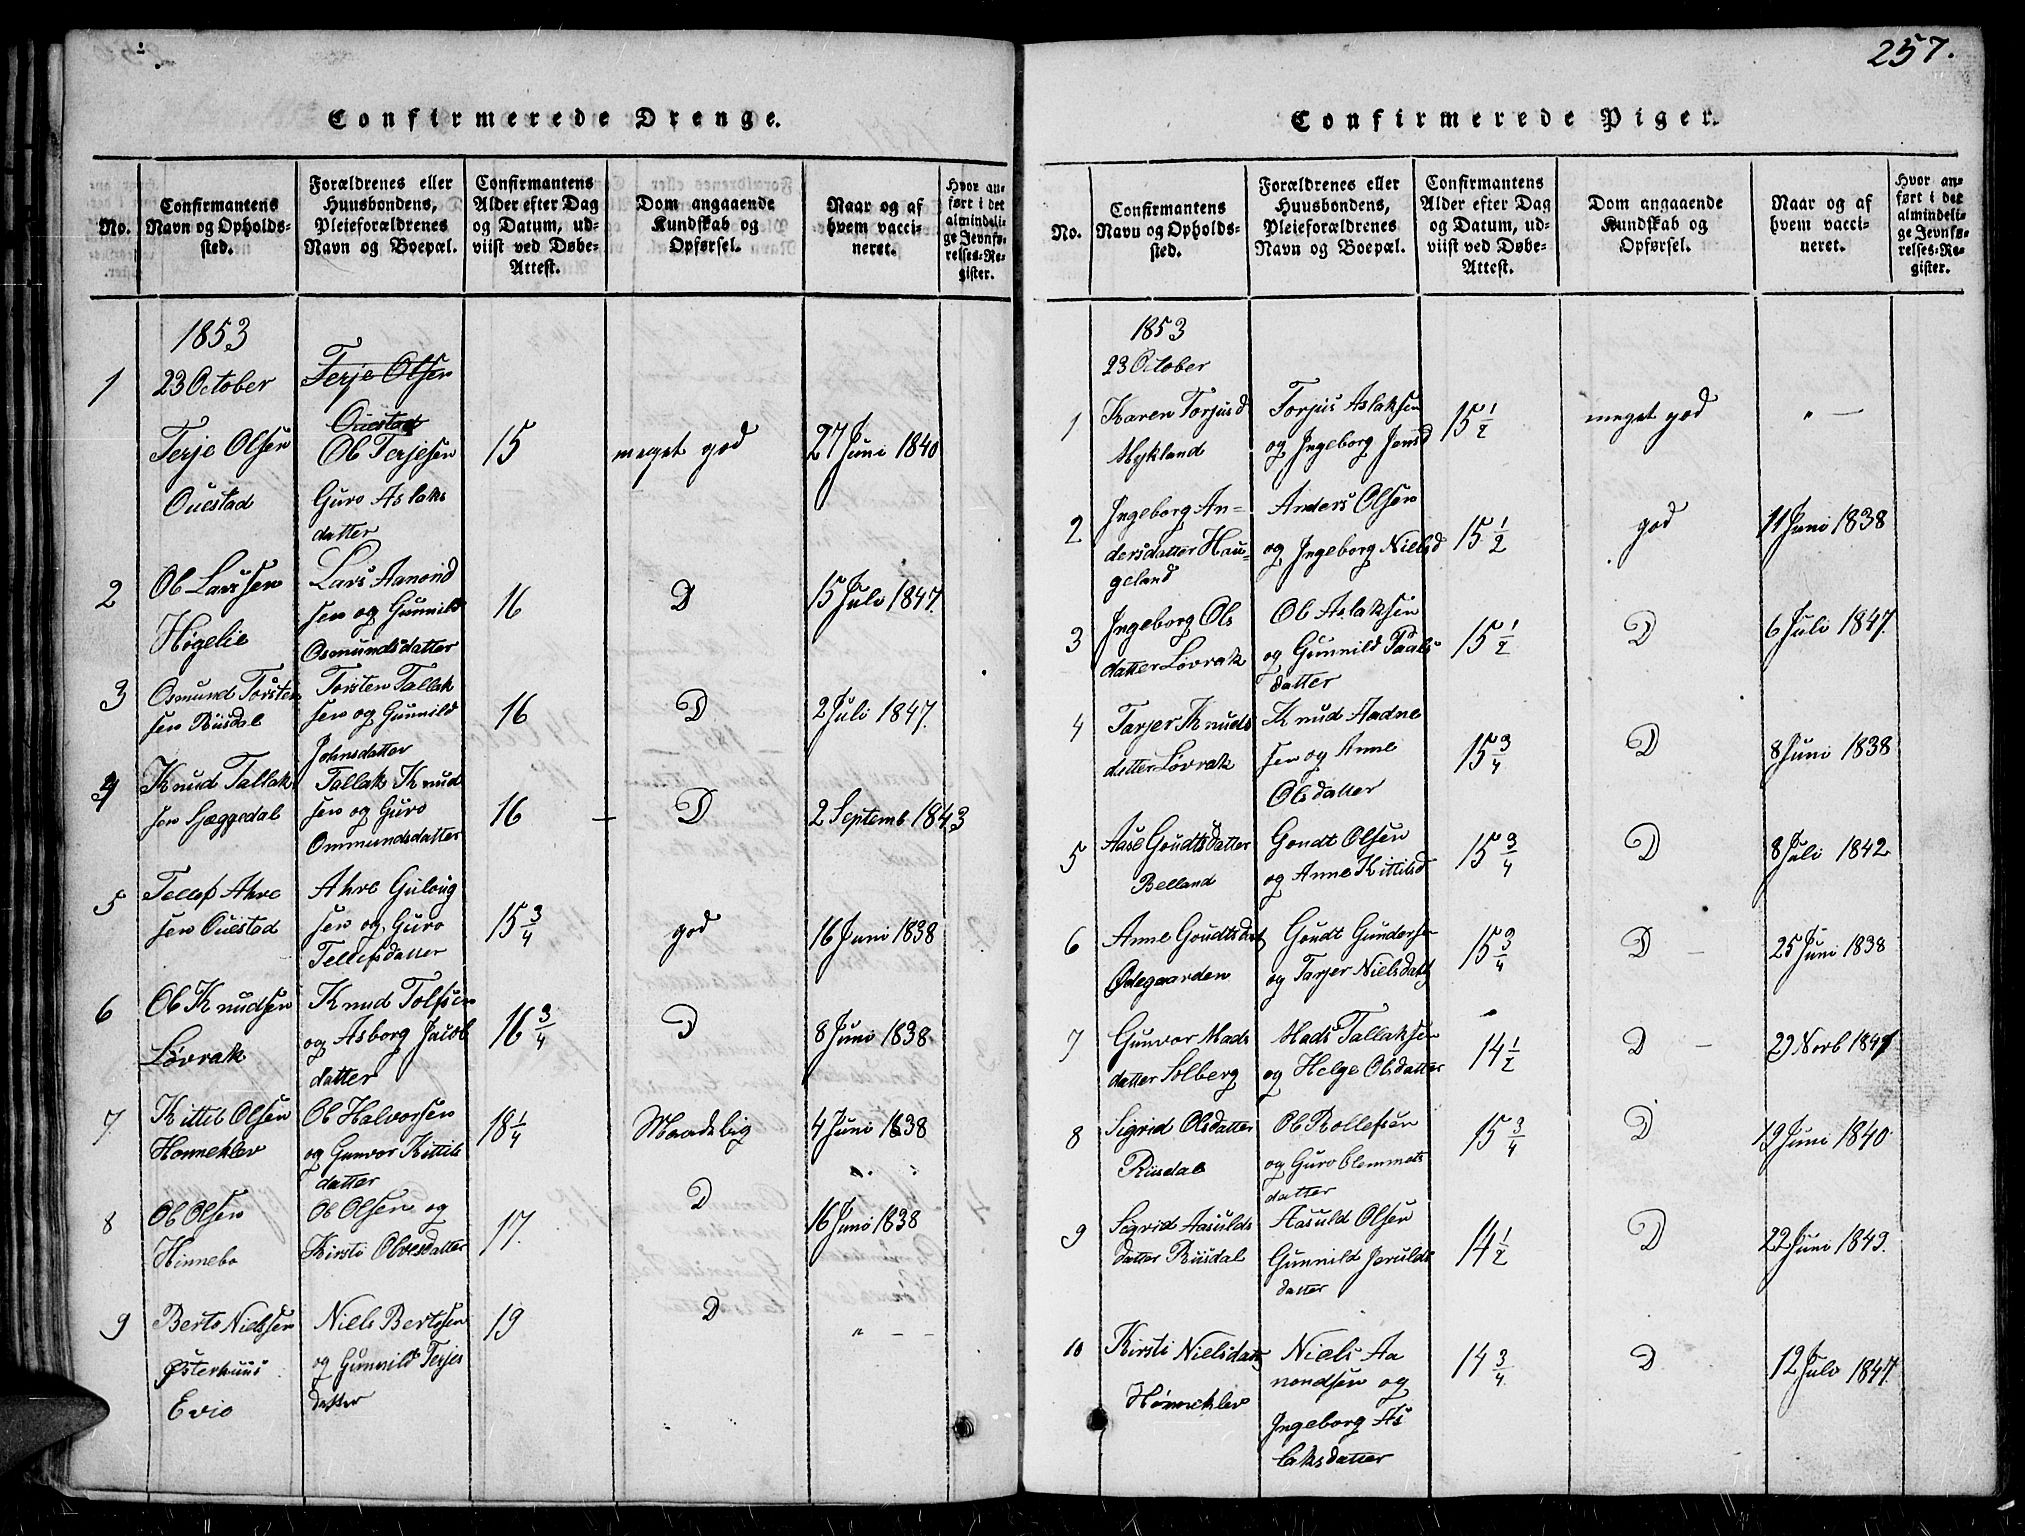 257.
Confirmerede Drenge.
No.
Confirmantens
Navn og Opholds-
sted.
Forældrenes eller
Huusbondens,
Pleieforældrenes
Navn og Boepæl.
Confirmantens
Alder efter Dag
og Datum, ud-
viist ved Døbe-
Attest.
Dom angaaende
Kundskab og
Opførsel.
Naar og af
hvem vacci-
neret.
Hvor an-
ført i det
almindeli-
ge Jevnfø-
relses-Re-
gister.
1853
1
23 October
Terje Olsen
Ouestad
Terje Olsen
Ouestad
Ol Terjesen
Guro Aslaks
datter
15
meget god
27 Juni 1840
2
Ol Larssen
Høgelie
Lars Aanond
sen og Gunnild
Osmundsdatter
16
D
15 Juli 1847.
3
Osmund Torsten
sen Riisdal
Torsten Tallak
sen og Gunnild
Johnsdatter
16
D
2 Juli 1847.
4
Knud Tallak
sen Sjæggedal
Tallak Knud
sen og Guro
Ommundsdatter
16
D
2 Septemb 1843
5
Tellef Ahre
sen Ouestad
Ahre Guloug
sen og Guro
Tellefsdatter
15 3/4
god
16 Juni 1838
6
Ol Knudsen
Løvrak
Knud Tolfsen
og Asborg Jacob
datter
16 3/4
D
8 Juni 1838
7
Kittel Olsen
Honnehlev
Ol Halvorsen
og Gunvor Kittils
datter
18 1/4
Maadelig
4 Juni 1838
8
Ol Olsen
Hinnebo
Ol Olsen og
Kirsti Olvesdatter
17.
D
16 Juni 1838
9
Berto Nielssen
Østerhuus
Evio
Niels Bertssen
og Gunnild Terjes
datter
19
D
" — —
Confirmerede Piger.
No.
Confirmantens
Navn og Opholds-
sted.
Forældrenes eller
Huusbondens,
Pleieforældrenes
Navn og Boepæl.
Confirmantens
Alder efter Dag
og Datum, ud-
viist ved Døbe-
Attest.
Dom angaaende
Kundskab og
Opførsel.
Naar og af
hvem vacci-
neret.
Hvor an-
ført i det
almindeli-
ge Jevnfø-
relses-Re-
gister.
1853
23 October
1
Karen Torjusd
Mykland
Torjus Aslaksen
og Ingeborg Jensd
15 1/2
meget god
" —
2
Ingeborg An-
dersdatter Hau-
geland
Anders Olsen
og Ingeborg Nielsd
15 1/2
god
11 Juni 1838
3
Ingeborg Ols
datter Løvrak
Ol Aslaksen
og Gunnild Paals
datter
15 1/2
D
6 Juli 1847.
4
Tarjer Knuds
datter Løvrak
Knud Aadne
sen og Anne
Olsdatter
15 3/4
D
8 Juni 1838
5
Aase Goudtsdatter
Belland
Goudt Olsen
og Anne Kittilsd
15 3/4
D
8 Juli 1842
6
Anne Goudtsdat
Ødegaarden
Goudt Gunderse
og Tarjer Nielsdatt
15 3/4
D —
25 Juni 1838
7
Gunvor Mads
datter Solberg
Mads Tallaksen
og Helge Olsdatter
14 1/2
D —
8
Sigrid Olsdatter
Riisdal
Ol Rollefsen
og Guro Clemmets
datter
15 3/4
D
12 Juni 1840
9
Sigrid Aasulds
datter Riisdal
Aasuld Olsen
Gunnild Jeruldsdatter
14 1/2
D
22 Juni 1843.
10
Kirsti Nielsdatt
Hønnehlev
Niels Aa
nondsen og
Ingeborg As
laksdatter
14 3/4
D
12 Juli 1847.